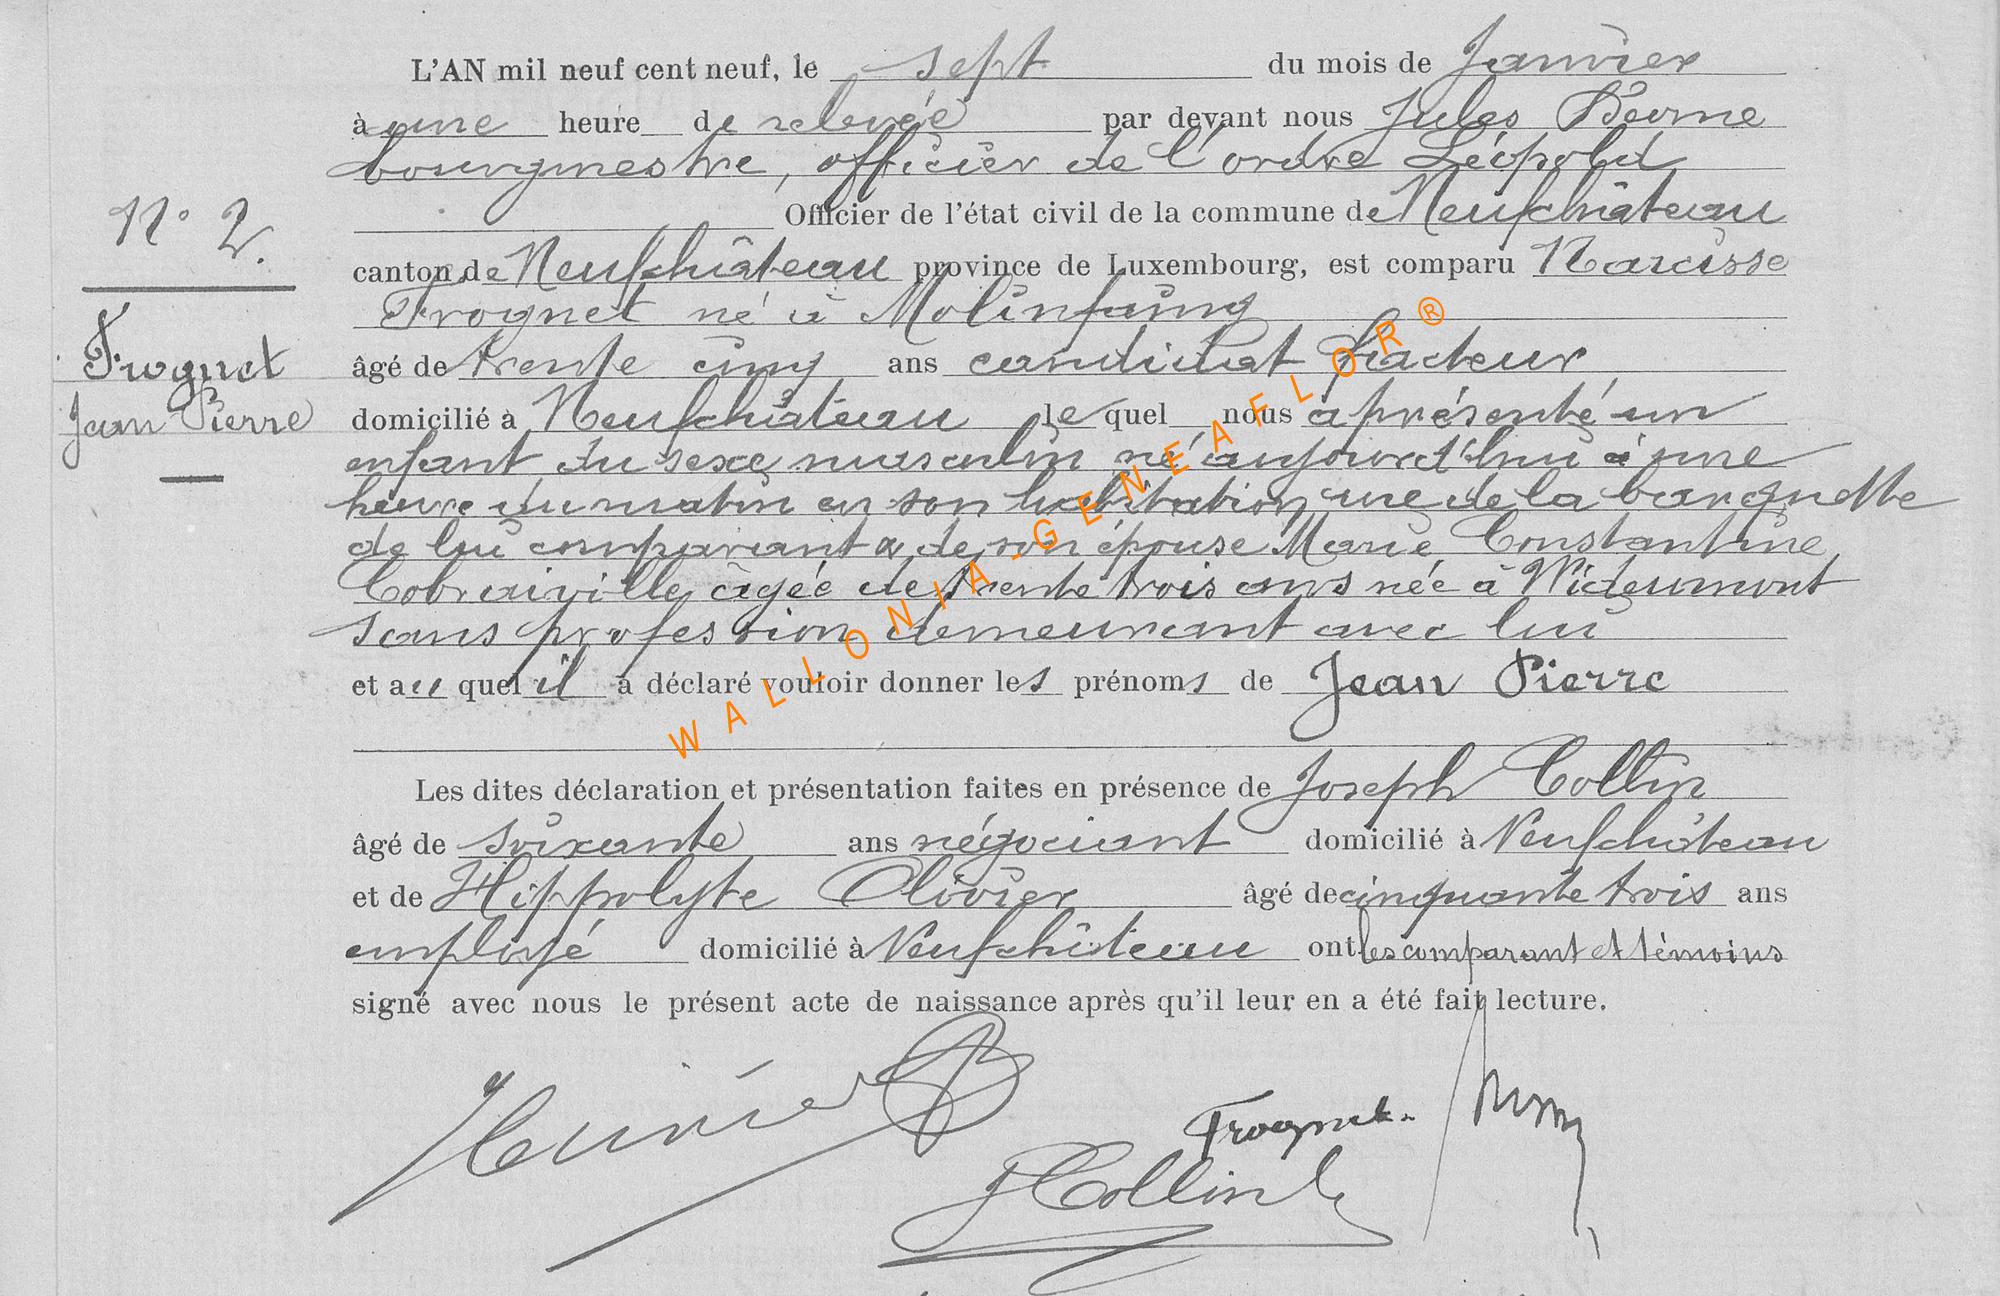 L'AN mil neuf cent neuf, le sept du mois de Janvier
à une heure de relevée par devant nous Jules
bourgmestre, officier de l'ordre Léopold
Officier de l'état civil de la commune de Neufchâteau
canton de Neufchâteau province de Luxembourg, est comparu Narcisse
N° 2.
Frognet né à Molinfaing
Frognet
Jean Pierre
âgé de trente cinq ans candidat facteur
domicilié à Neufchâteau lequel nous a présenté un
enfant du sexe masculin né aujourd'hui à une
heure du matin en son habitation rue de la
de lui comparant & de son épouse Marie Constantine
âgée de trente trois ans née à Wideumont
sans profession demeurant avec lui
et au quel il a déclaré vouloir donner les prénoms de Jean Pierre
WALLONIA-GENEAFLOR®
Les dites déclaration et présentation faites en présence de Joseph Collin
âgé de soixante ans négociant domicilié à Neufchâteau
et de Hippolyte Olivier âgé de cinquante trois ans
employé domicilié à Neufchâteau ont les comparant et témoins
signé avec nous le présent acte de naissance après qu'il leur en a été fait lecture.
Frognet.
J Collin